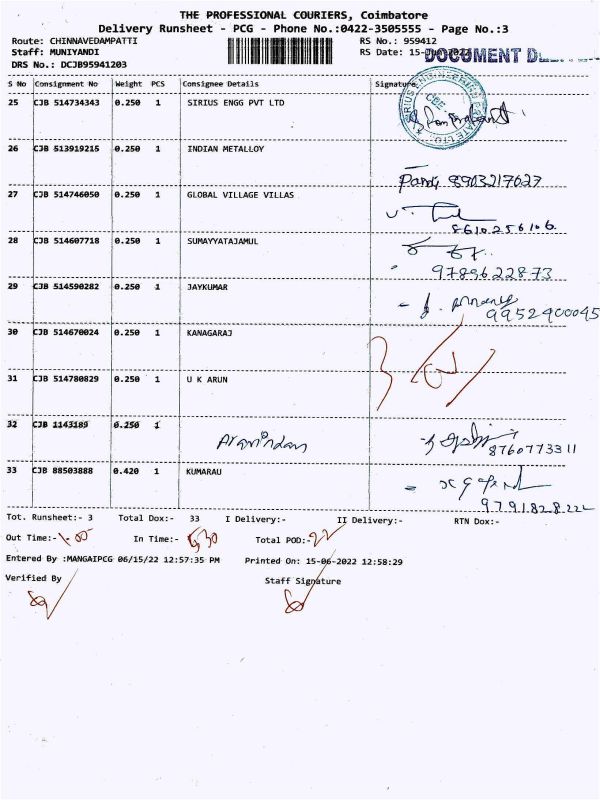 THE PROFESSIONAL COURIERS, Coimbatore
Delivery Runsheet - PCG - Phone No.:0422-3505555 - Page No.:3
Route: CHINNAVEDAMPATTI RS No.: 959412
Staff: MUNIYANDI RS Date: 15-Jun-2022 DOCUMENT
DRS No.: DCJB95941203
S No Consignment No Weight PCS Consignee Details Signature
25 CJB 514734343 0.250 1 SIRIUS ENGG PVT LTD
SIRIUS ENGINEERING PRIVATE LTD CBE
26 CJB 513919215 0.250 1 INDIAN METALLOY
8903217627
27 CJB 514746050 0.250 1 GLOBAL VILLAGE VILLAS
8610256106
28 CJB 514607718 0.250 1 SUMAYYATAJAMUL
9789622873
29 CJB 514590282 0.250 1 JAYKUMAR
9952400045
30 CJB 514670024 0.250 1 KANAGARAJ
31 CJB 514780829 0.250 1 U K ARUN
32 CJB 1143189 0.250 1
Aravindan 8760773311
33 CJB 88503888 0.420 1 KUMARAU
9791828222
Tot. Runsheet:- 3 Total Dox:- 33 I Delivery:- II Delivery:- RTN Dox:-
Out Time:- 1.00 In Time:- 6.30 Total POD:- 22
Entered By :MANGAIPCG 06/15/22 12:57:35 PM Printed On: 15-06-2022 12:58:29
Verified By Staff Signature